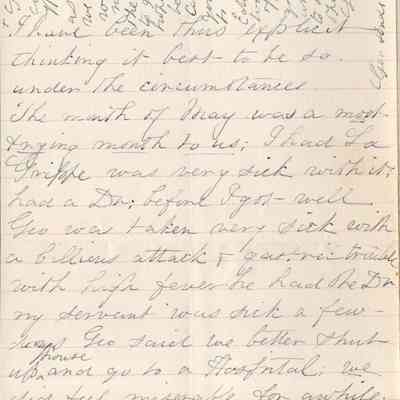 I have been thus explicit
thinking it best to be so.
under the circumstances.
The month of May was a most
trying month to us; I had La
Grippe was very sick with it;
had a Dr; before I got well
Geo was taken very sick with
a billious attack & gastric trouble
with high fever he had the Dr
my servant was sick a few
days Geo said we better shut
house
up and go to a Hospital; we
did feel miserable for awhile